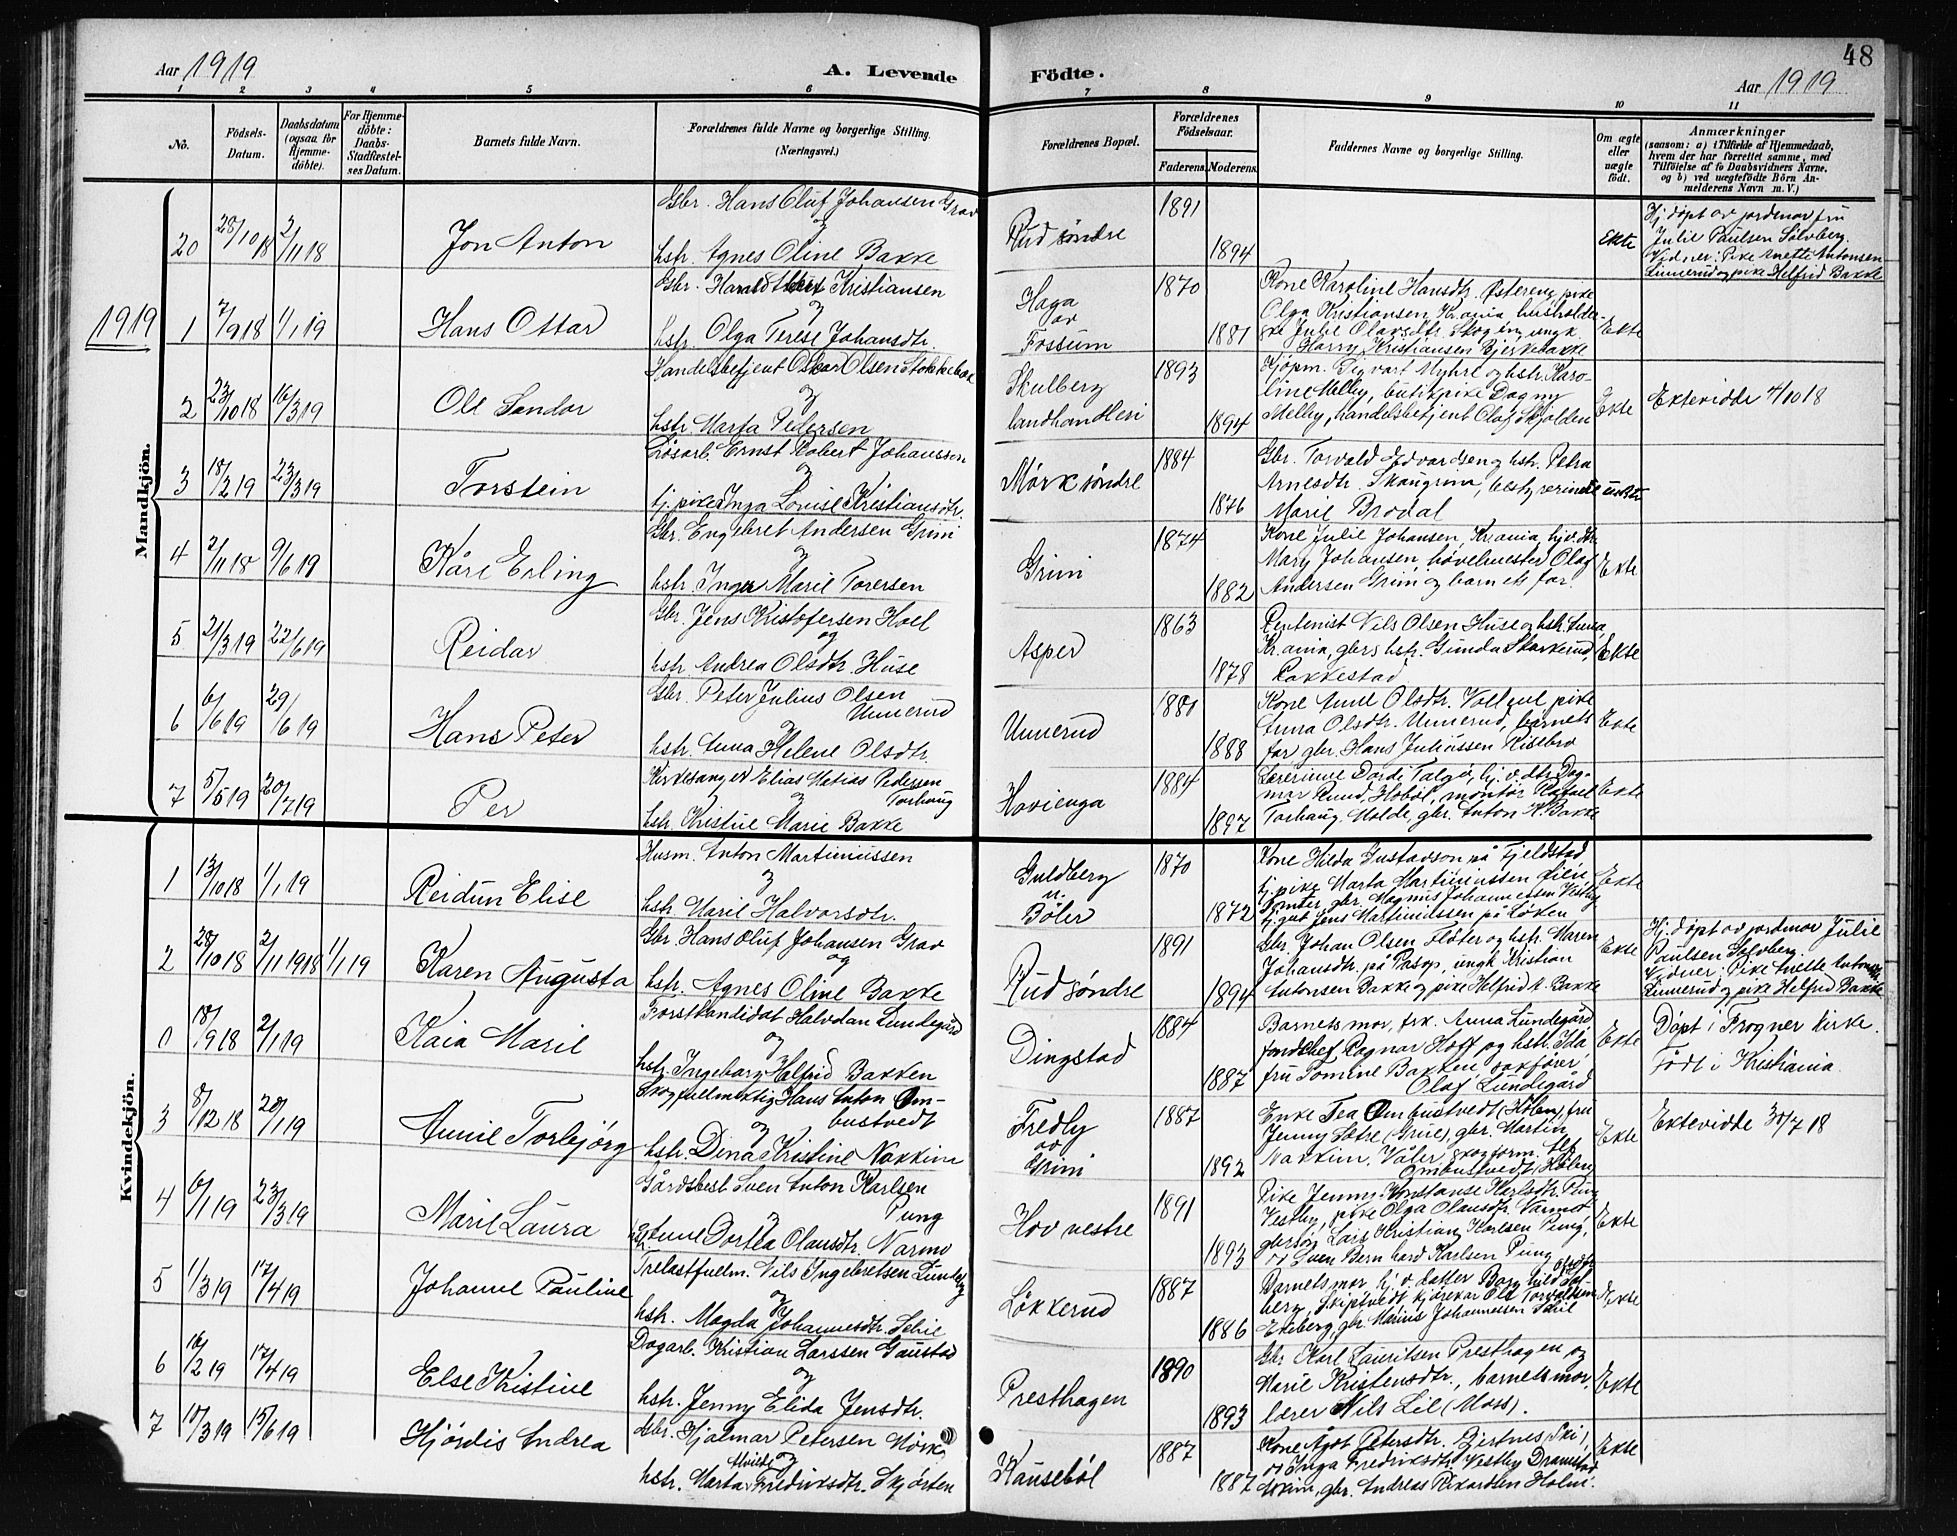 48
Aar 1919
A. Levende
Födte.
Aar 1919
1 2 3 4 5 6 7 8 9 10 11
No.
Födsels-
Datum.
Daabsdatum
(ogsaa for
Hjemme-
döbte).
For Hjemme-
döbte:
Daabs-
Stadfæstel-
ses Datum.
Barnets fulde Navn.
Forældrenes fulde Navne og borgerlige Stilling.
(Næringsvei.)
Forældrenes Bopæl.
Forældrenes
Födselsaar.
Faderens. Moderens.
Faddernes Navne og borgerlige Stilling.
Om ægte
eller
uægte
födt.
Anmærkninger
(saasom: a) i Tilfælde af Hjemmedaab,
hvem der har forrettet samme, med
Tilföielse af to Daabsvidners Navne,
og b) ved uægtefödte Börn An-
melderens Navn m. V.)
Mandkjön.
20 28/10 18 2/11 18 Jon Anton
Gbr. Hans Oluf Johansen Grav
og
hstr. Agnes Oline Bakke
Rud söndre
1891
1894
Ekte
Hj. döpt av jordmor fru
Julie Paulsen Solberg.
Vidner: Pike Anette Antonsen
Linnerud og pike Helfrid Bakke
1919
1 7/9 18 1/1 19 Hans Ottar
Gbr. Harald Kristiansen
og
hstr. Olga Terese Johansdtr.
Haga
av
Fossum
1870
1881
Kone Karoline Hansdtr. Östereng, pike
Olga Kristiansen, Kr.ania, husholder-
ske Julie Olavsdtr. Skogen, ungk.
Harry Kristiansen Bjerkebakke
Ekte
2 23/10 18 16/3 19 Ole Sandor
Handelsbetjent Oskar Olsen Stokkebæk
og
hstr. Marta Pedersen
Skulberg
landhandleri
1893
1894
Kjöpm. Sigvart Myhre og hstr. Karo-
line Melby, butikpike Dagny
Melby, handelsbetjent Olaf Skjolden
Ekte
Ektevidde 4/10 18
3 18/2 19 23/3 19 Torstein
Lösarb. Ernst Robert Johansson
og
tj. pike Inga Lovise Kristiansdtr.
Mörk söndre
1884
1876
Gbr. Torvald Edvardsen og hstr. Petra
Arnesdtr. Skaugrim, bestyrerinde
Marie Brodal
uekte
4 2/11 18 9/6 19 Kåre Erling
Gbr. Engebret Andersen Grini
og
hstr. Inga Marie Torersen
Grini
1874
1882
Kone Julie Johansen, Kr.ania, hj.v. dtr.
Mary Johansen, hövelmester Olaf
Andersen Grini og barnets far
Ekte
5 21/3 19 22/6 19 Reidar
Gbr. Jens Kristofersen Hoel
og
hstr. Andrea Olsdtr. Huse
Asper
1863
1878
Rentenist Nils Olsen Huse og hstr. Anna,
Kr.ania, gbrs hstr. Gunda Skarkerud,
Rakkestad
Ekte
6 6/6 19 29/6 19 Hans Peter
Gbr. Peter Julius Olsen
Unnerud
og
hstr. Anna Helene Olsdtr.
Unnerud
1881
1888
Kone Anne Olsdtr. pike
Anna Olsdtr. Unnerud, barnets
far gbr. Hans Juliussen Risebro
Ekte
7 5/5 19 20/7 19 Per
Kirkesanger Elias Matias Pedersen
Torhaug
og
hstr. Kristine Marie Bakke
Hovienga
1884
1897
Lærerinne Dordi Talgö, hj. v. dtr. Dag-
mar Ruud, Hoböl, montör Rafael
Torhaug, Molde, gbr. Anton H. Bakke
Ekte
Kvindekjön.
1 13/10 18 1/1 19 Reidun Elise
Husm. Anton Martiniussen
og
hstr. Marie Halvorsdtr.
Guldberg
u.
Böler
1870
1872
Kone Hilda Gustavson på Fjeldstad,
tj. pike Marta Martiniussen
Tomter, gbr. Magnus Johannessen Vestby
tj. gut Jens Martiniussen på Löken
Ekte
2 28/10 18 2/11 1918 1/1 19 Karen Augusta
Gbr. Hans Oluf Johansen Grav
og
hstr. Agnes Oline Bakke
Rud söndre
1891
1894
Gbr. Johan Olsen Flöter og hstr. Maren
Johansdtr. på Pasop, ungk. Kristian
Antonsen Bakke og pike Helfrid A. Bakke
Ekte
Hj. döpt av jordmor Julie
Paulsen Solberg.
Vidner: Pike Anette Antonsen
Linnerud og pike Helfrid Bakke
0 18/9 18 2/1 19 Kaia Marie
Forstkandidat Halvdan Lundegård
og
hstr. Ingeborg Helfrid Bakken
Dingstad
1884
1887
Barnets mor, frk. Anna Lundegård
fondschef Ragnar Hoff og hstr. Ida
fru Tomine Bakken, sakförer
Olaf Lundegård
Ekte
Döpt i Frogner kirke.
Född i Kristiania
3 8/12 18 28/1 19 Anne Torbjörg
Skogfullmektig Hans Anton Om-
bustvedt
og
hstr. Dina Kristine Nakkim
Fredly
av
Grini
1887
1892
Enke Tea Ombustvedt (Hölen), fru
Jenny Sætre (Grue), gbr. Martin
Nakkim, Våler, skogform. Alf
Ombustvedt, Hölen
Ekte
Ektevidde 30/7 18
4 6/1 19 23/3 19 Marie Laura
Gårdsbest. Sven Anton Karlsen
Pung
og
hstr. Anne Dortea Olausdtr. Narmo
Hov vestre
1891
1893
Pike Jenny Konstanse Karlsdtr. Pung
Vestby, pike Olga Olausdtr. Varmo
gbrsön Lars Kristian Karlsen Pung,
og Sven Bernhard Karlsen Pung
Ekte
5 1/3 19 17/4 19 Johanne Pauline
Trelastfullm. Nils Ingebretsen Lundeby
og
hstr. Magda Johannesdtr. Schie
Lökkerud
1887
1886
Barnets mor, hj. v. datter Borghild Sol-
berg, Skiptvedt, kjörekar Ole Torvaldsen
Ekeberg, gbr. Marius Johannessen Schie
Ekte
6 16/2 19 17/4 19 Else Kristine
Dagarb. Kristian Larssen Gaustad
og
hstr. Jenny Elida Jensdtr.
Presthagen
1890
1893
Gbr. Karl Lauritsen Presthagen, og
Marie Kristensdtr., barnets mor,
lærer Nils Lie (Moss).
Ekte
7 18/3 19 15/6 19 Hjördis Andrea
Gbr. Hjalmar Petersen Mörk
og
hstr. Marta Fredriksdtr. Skjörten
Kauseböl
1887
1887
Kone Agot Petersdtr. Gjertnes, Ski,
og Inga Fredriksdtr. Vestby Dramstad
Askim, gbr. Andreas Rikardsen Holm.
Ekte